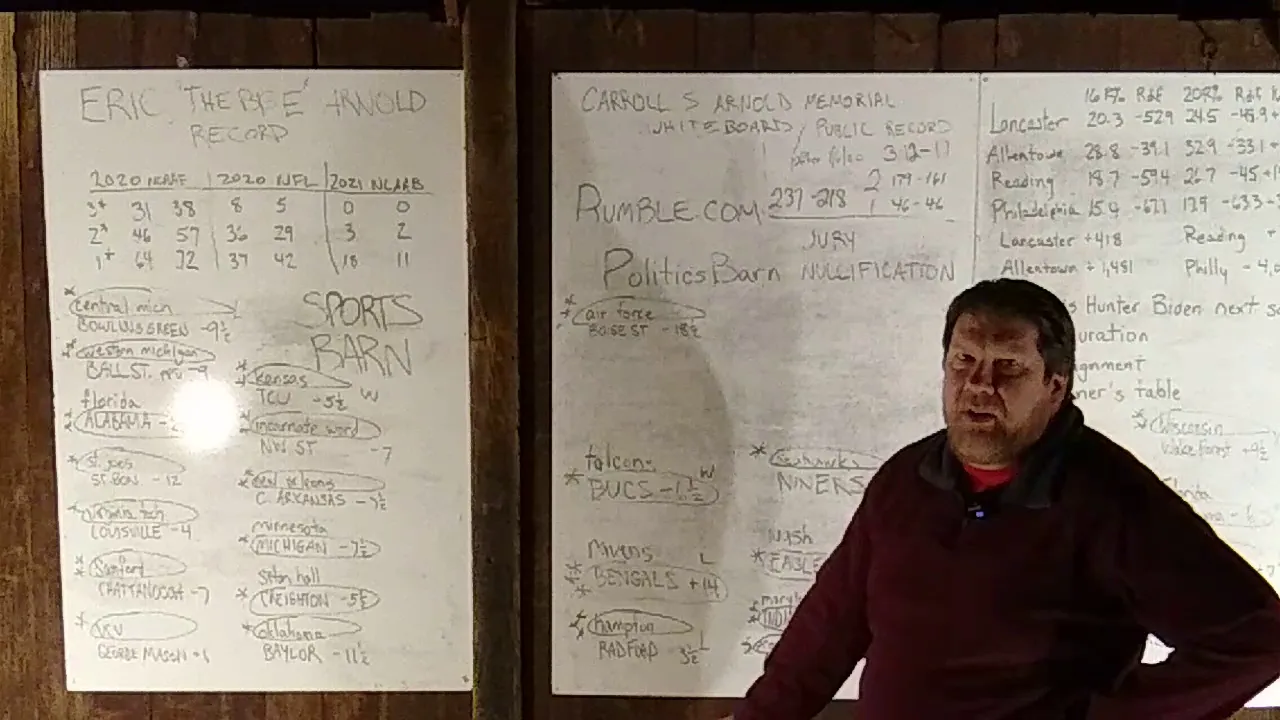 ERIC "THE BEE" ARNOLD
RECORD
2020 NCAAF 2020 NFL 2021 NCAAB
3* 31 38 8 5 0 0
2* 46 57 36 29 3 2
1* 64 32 37 42 18 11
SPORTS
BARN
central mich
BOWLING GREEN -9½
western michigan
BALL ST. -9
florida
ALABAMA
st. joes
ST. BON -12
virginia tech
LOUISVILLE -4
Samford
CHATTANOOGA -7
GEORGE MASON
kansas
TCU -5½ W
incarnate word
NW ST -7
new orleans
C. ARKANSAS
minnesota
MICHIGAN -7½
seton hall
CREIGHTON -5½
oklahoma
BAYLOR -11½
CARROLL S ARNOLD MEMORIAL
WHITEBOARD / PUBLIC RECORD
RUMBLE.COM 237-218 2 179-161
1 46-46
JURY
PoliticsBarn NULLIFICATION
air force
BOISE ST -18½
falcons W
BUCS
ravens L
BENGALS +14
hampton
RADFORD 3½ L
seahawks
NINERS
wash
EAGLE
16 R% Rdf 20R% Rdf
Lancaster 20.3 -529 24.5
Allentown 28.8 -39.1 32.9 -33.1
Reading 18.7 -59.4 26.7 -45
Philadelphia 15.4
Lancaster +418 Reading +
Allentown +1,481 Philly -4,0
s Hunter Biden next s
uration
gnment
ner's table
Wisconsin
Wake Forest